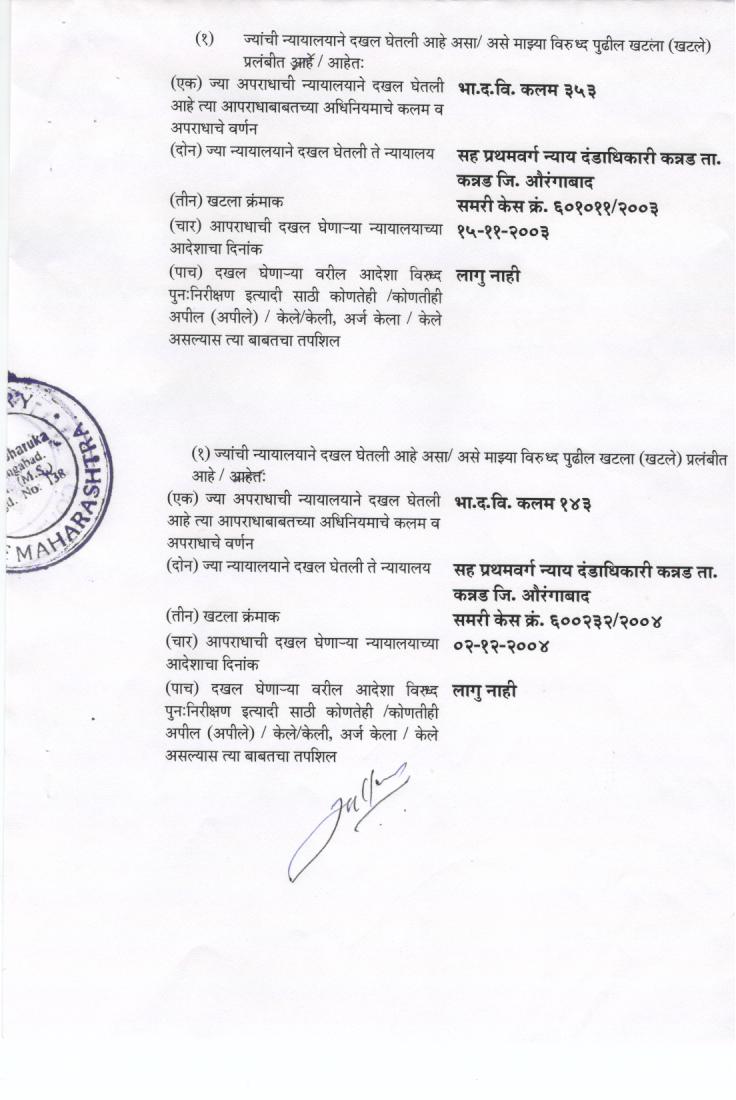 (१) ज्यांची न्यायालयाने दखल घेतली आहे असा/ असे माझ्या विरुध्द पुढील खटला (खटले)
प्रलंबीत आहे / आहेतः
(एक) ज्या अपराधाची न्यायालयाने दखल घेतली भा.द.वि. कलम ३५३
आहे त्या आपराधाबाबतच्या अधिनियमाचे कलम व
अपराधाचे वर्णन
(दोन) ज्या न्यायालयाने दखल घेतली ते न्यायालय सह प्रथमवर्ग न्याय दंडाधिकारी कन्नड ता.
कन्नड जि. औरंगाबाद
(तीन) खटला क्रंमाक समरी केस क्रं. ६०१०११/२००३
(चार) आपराधाची दखल घेणाऱ्या न्यायालयाच्या १५-११-२००३
आदेशाचा दिनांक
(पाच) दखल घेणाऱ्या वरील आदेशा विरुध्द लागु नाही
पुनःनिरीक्षण इत्यादी साठी कोणतेही /कोणतीही
अपील (अपीले) / केले/केली, अर्ज केला / केले
असल्यास त्या बाबतचा तपशिल
MAHARASHTRA
(M.S.)
138
(१) ज्यांची न्यायालयाने दखल घेतली आहे असा/ असे माझ्या विरुध्द पुढील खटला (खटले) प्रलंबीत
आहे / आहेतः
(एक) ज्या अपराधाची न्यायालयाने दखल घेतली भा.द.वि. कलम १४३
आहे त्या आपराधाबाबतच्या अधिनियमाचे कलम व
अपराधाचे वर्णन
(दोन) ज्या न्यायालयाने दखल घेतली ते न्यायालय सह प्रथमवर्ग न्याय दंडाधिकारी कन्नड ता.
कन्नड जि. औरंगाबाद
(तीन) खटला क्रंमाक समरी केस क्रं. ६००२३२/२००४
(चार) आपराधाची दखल घेणाऱ्या न्यायालयाच्या ०२-१२-२००४
आदेशाचा दिनांक
(पाच) दखल घेणाऱ्या वरील आदेशा विरुध्द लागु नाही
पुनःनिरीक्षण इत्यादी साठी कोणतेही /कोणतीही
अपील (अपीले) / केले/केली, अर्ज केला / केले
असल्यास त्या बाबतचा तपशिल